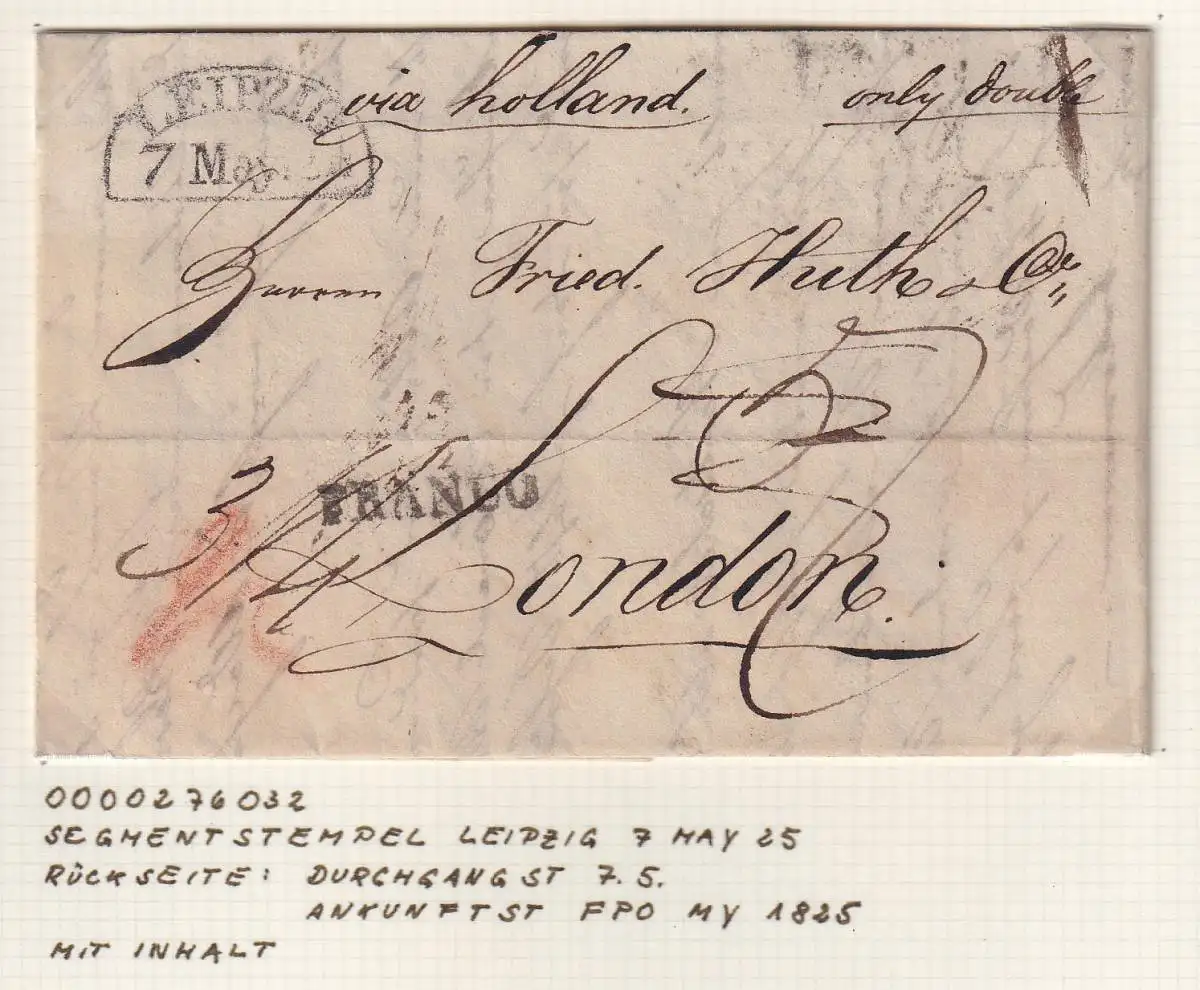 via holland. only double
LEIPZIG
7 May.
Herren Fried. Huth & Co,,
FRANCO
3/4
London.
0000276032
SEGMENTSTEMPEL LEIPZIG 7 MAY 25
RÜCKSEITE: DURCHGANGST 7.5.
ANKUNFTST FPO MY 1825
MIT INHALT